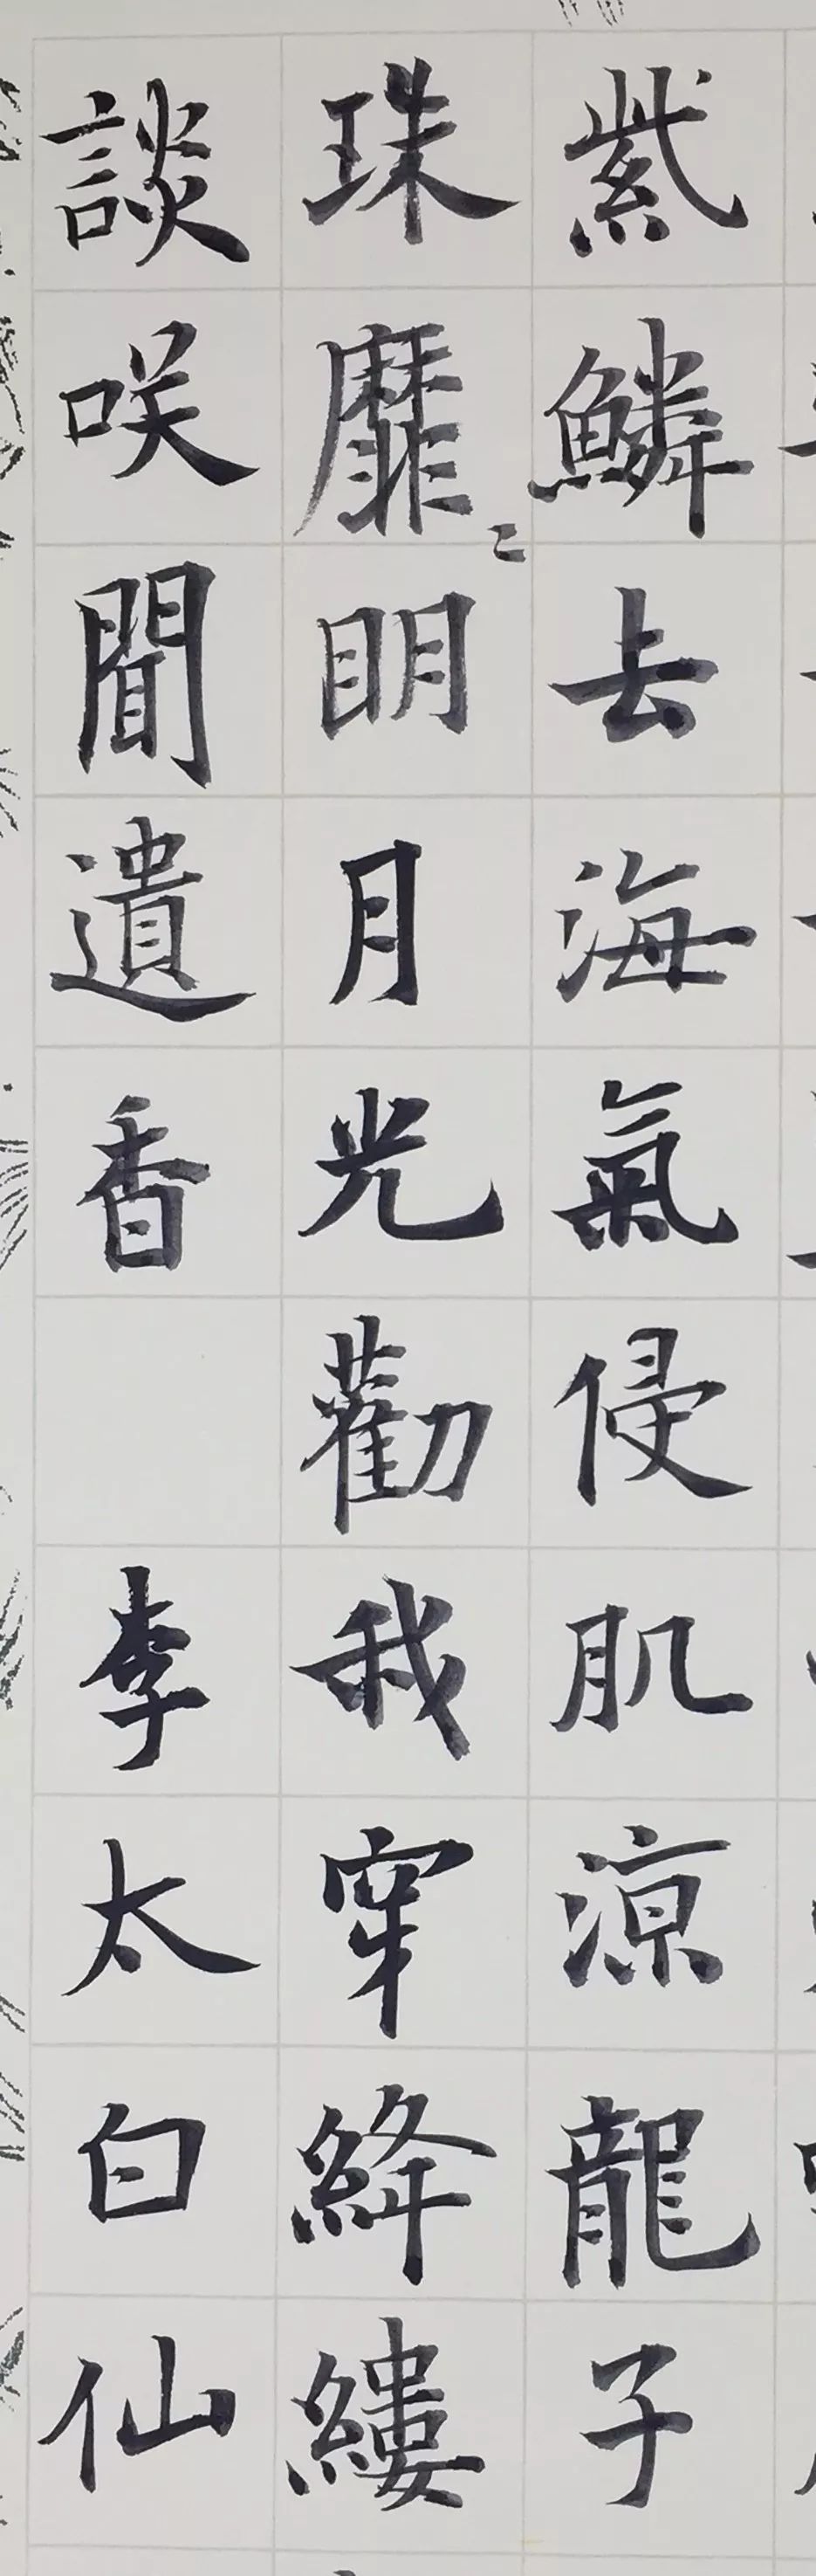 紫鱗去海氣侵肌涼龍子
珠靡〻明月光勸我穿絳縷
談咲聞遺香 李太白仙